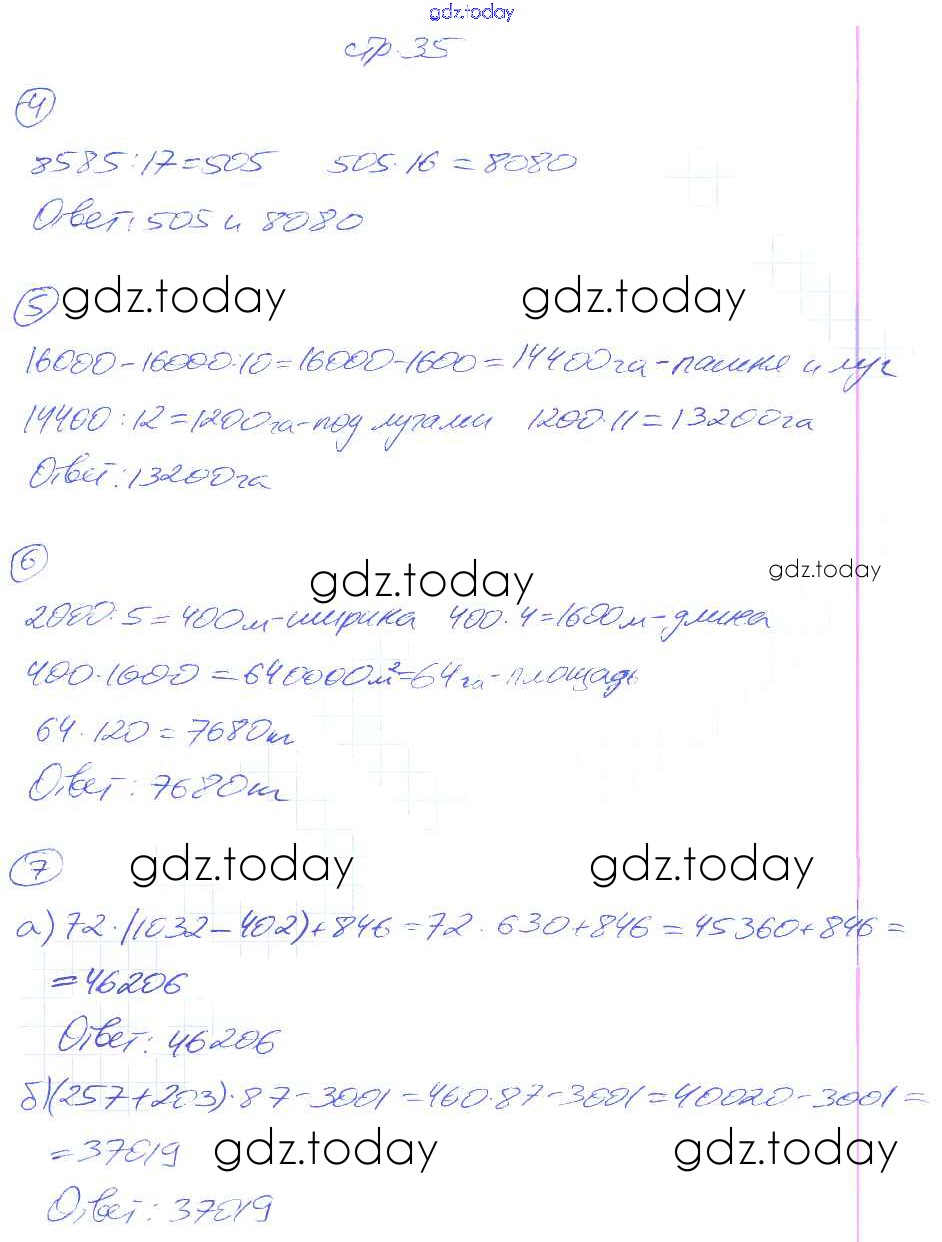 gdz.today
стр. 35
4
8585:17=505 505·16=8080
Ответ: 505 и 8080
5 gdz.today gdz.today
16000-16000:10=16000-1600=14400га-пашня и луг
14400:12=1200га-под лугами 1200·11=13200га
Ответ: 13200га
6
gdz.today gdz.today
2000:5=400м-ширина 400·4=1600м-длина
400·1600=640000м²=64га-площадь
64·120=7680т
Ответ: 7680т
7 gdz.today gdz.today
а) 72·(1032-402)+846=72·630+846=45360+846=
=46206
Ответ: 46206
б) (257+203)·87-3001=460·87-3001=40020-3001=
=37019 gdz.today gdz.today
Ответ: 37019